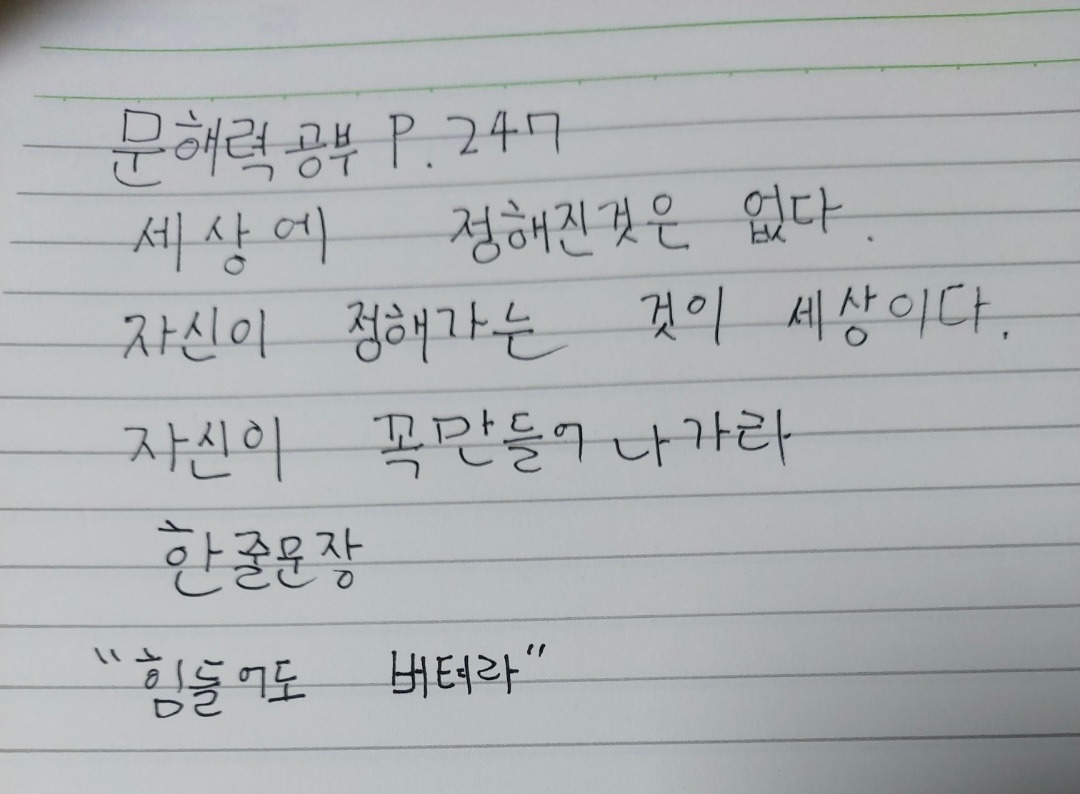 문해력 공부 P. 247
세상에 정해진것은 없다.
자신이 정해가는 것이 세상이다.
자신이 꼭만들어 나가라
한줄문장
"힘들어도 버텨라"